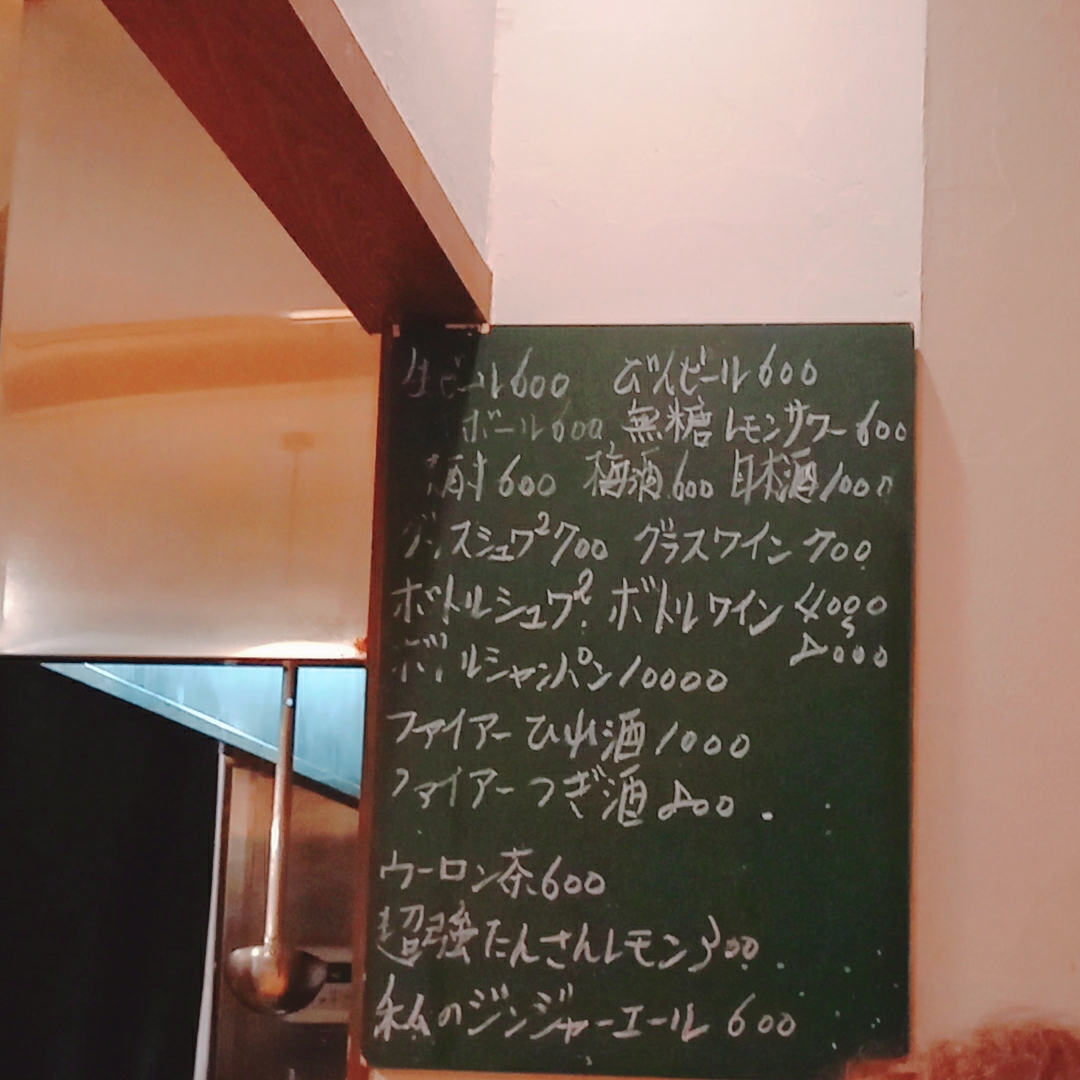 生ビール600 びんビール600
ボール600 無糖レモンサワー600
焼酎600 梅酒600 日本酒1000
グラスシュワ2 700 グラスワイン700
ボトルシュワ2. ボトルワイン4000
ボトルシャンパン10000
ファイアーひれ酒1000
ファイアーつぎ酒
ウーロン茶600
超強たんさんレモン300
私のジンジャーエール600